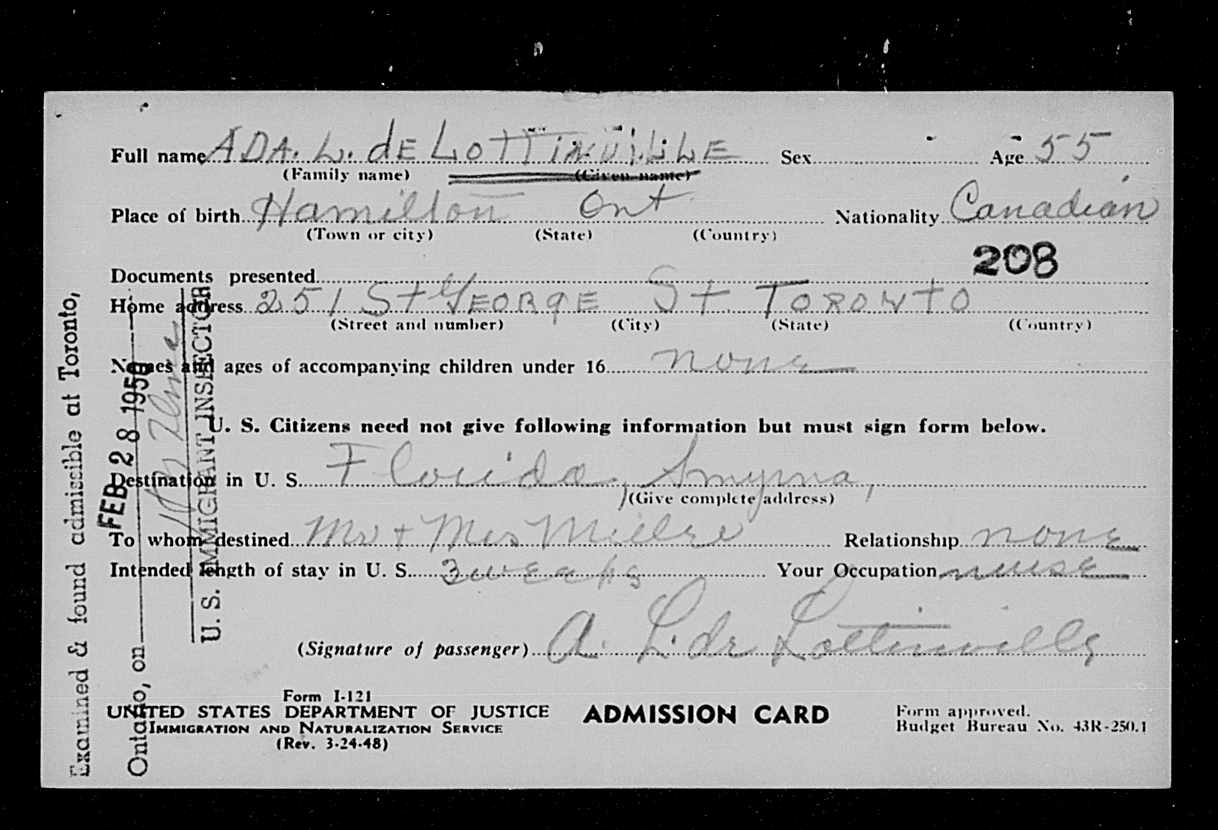 Full name ADA. L. de LOTTINVILLE Sex Age 55
(Family name) (Given name)
Place of birth Hamilton Ont Nationality Canadian
(Town or city) (State) (Country)
208
Documents presented
Home address 251 St GEORGE St TORONTO
(Street and number) (City) (State) (Country)
Names and ages of accompanying children under 16 none
U. S. Citizens need not give following information but must sign form below.
Destination in U. S. Florida, Smyrna,
(Give complete address)
To whom destined Mr + Mrs Relationship none
Intended length of stay in U. S. 3 weeks Your Occupation nurse
(Signature of passenger) A. L. de Lottinville
Form I-121
UNITED STATES DEPARTMENT OF JUSTICE
IMMIGRATION AND NATURALIZATION SERVICE
(Rev. 3-24-48)
ADMISSION CARD
Form approved.
Budget Bureau No. 43R-250.1
Examined & found admissible at Toronto,
Ontario, on FEB 28 1950
U. S. IMMIGRANT INSPECTOR